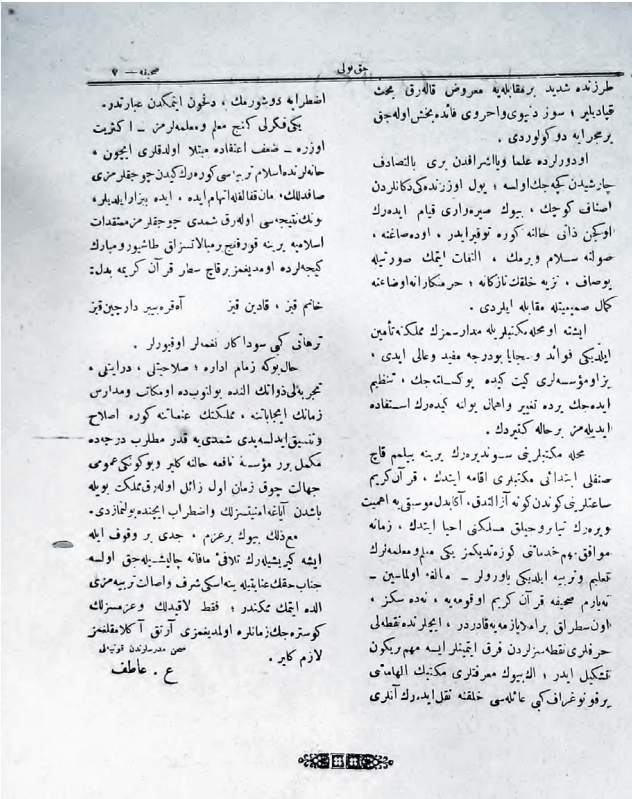 حق يولى
صحيفه — ٧
طرزنده شديد بر مقابله‌يه معروض قاله‌رق بحث
قپاديلير ؛ سوز دنيوى واخروى فائده بخش اوله‌جق
بر مجرايه دوكولوردى .
اودورلرده علما ويا اشرافدن برى بالتصادف
چارشيدن كچه‌جك اولسه ؛ يول اوزرنده‌كى دكانلردن
اصناف كوچك ، بيوك صيره‌وارى قيام ايده‌رك
اوكچن ذاتى حالنه كوره توقير ايدر ، اوده صاغنه ،
صولنه سلام ويرمك ، التفات ايتمك صورتيله
بوصاف ، نزيه خلقك نازكانه ؛ حرمتكارانه اوضاعنه
كمال صميميتله مقابله ايلردى .
ايشته او محله مكتبلريله مدارسمزك مملكته تأمين
ايلديكى فوائد و سجايا بودرجه مفيد وعالى ايدى ،
بز او مؤسسه‌لرى كيت كيده يوكسلته‌جك ، تنظيم
ايده‌جك يرده تغيير واهمال يولنه كيده‌رك استفاده
ايديله‌مز برحاله كتيردك .
محله مكتبلرينى سوندیره‌رك يرينه بيلمم قاچ
صنفلى ابتدائى مكتبلرى اقامه ايتدك ، قرآن كريم
ساعتلرينى كوندن كونه آزالتدق ، آكا بدل موسيقى‌يه اهميت
ويره‌رك تياتروجيلق مسلكنى احيا ايتدك ، زمانه
موافق مهم خدماتى كوزه‌تديكمز يكى معلم ومعلمه‌لرك
تعليم وتربيه ايلديكى ياورولر — مألهـ اولماسين —
نه يارم صحيفه قرآن كريم اوقومه‌يه ، نه‌ده سكز ،
اون سطرلق بر املا يازمه‌يه قادردر ، ايچلرنده نقطه‌لى
حرفلرى نقطه‌سزلردن فرق ايتمينلر ايسه مهم بريكون
تشكيل ايدر ؛ اك بيوك معرفتلرى مكتبك الهاماتى
برفونوغراف كبى عائله‌سى خلقنه نقل ايده‌رك آنلرى
اضطرابه دوشورمك ، دلخون ايتمكدن عبارتدر .
يكى فكرلى كنج معلم ومعلمه‌لرمز — اكثريت
اوزره — ضعف اعتقاده مبتلا اولدقلرى ايچون ،
خانه‌لرنده اسلام تربيه‌سى كوره‌رك كيدن چوجقلرمزى
صافدللك، مان قفالقله اتهام ايده ، ايده بيزار ايلديلر،
بونك نتيجه‌سى اوله‌رق شمدى چوجقلرمز معتقدات
اسلاميه يرينه قورقنج برمبالاتسزلق طاشيور ومبارك
كيجه‌لرده اومديغمز برقاچ سطار قرآن كريمه بدل :
خانم قيز ، قادين قيز آه قره بيبر دارچين قيز
ترهاتى كبى سوداكار نغمه‌لر اوقيورلر .
حال بوكه زمام اداره ؛ صلاحيتلى ، درايتلى ،
تجربه‌لى ذواتك النده بولنوب‌ده او مكاتب ومدارس
زمانك ايجاباتنه ، مملكتك عنعناتنه كوره اصلاح
وتنسيق ايدلسه‌يدى شمدى‌يه قدر مطلوب درجه‌ده
مكمل برر مؤسسهٔ نافعه حالنه كلير وبوكونكى عمومى
جهالت چوق زمان اول زائل اوله‌رق مملكت بويله
باشدن آياغه امنيتسزلك واضطراب ايچنده بولنمازدى.
مع ذلك بيوك برعزم ، جدى بر وقوف ايله
ايشه كيريشيله‌رك تلافئ مافاته چاليشيله‌جق اولسه
جناب حقك عنايتيله ينه اسكى شرف واصالت تربيه‌مزى
الده ايتمك ممكندر ؛ فقط لاقيدلك وعزمسزلك
كوستره‌جك زمانلره اولمديغمزى آرتق آكلامقلغمز
لازم كلير .
صحن مدرسلرندن قونيه‌لى
ع . عاطف